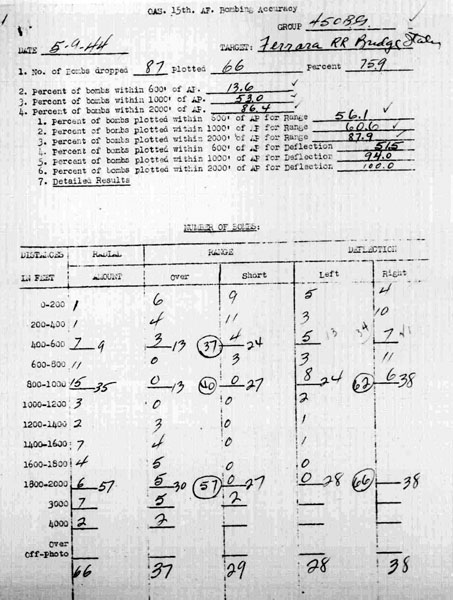 OAS. 15th. AF. Bombing Accuracy
GROUP 450BG
DATE 5-9-44 TARGET: Ferrara RR Bridge Italy
1. No. of Bombs dropped 87 Plotted 66 Percent 75.9
2. Percent of bombs within 600' of AP. 13.6
3. Percent of bombs within 1000' of AP. 53.0
4. Percent of bombs within 2000' of AP. 86.4
1. Percent of bombs plotted within 600' of AP for Range 56.1
2. Percent of bombs plotted within 1000' of AP for Range 60.6
3. Percent of bombs plotted within 2000' of AP for Range 87.9
4. Percent of bombs plotted within 600' of AP for Deflection 51.5
5. Percent of bombs plotted within 1000' of AP for Deflection 94.0
6. Percent of bombs plotted within 2000' of AP for Deflection 100.0
7. Detailed Results
NUMBER OF BOMBS:
DISTANCES RADIAL RANGE DEFLECTION
IN FEET AMOUNT Over Short Left Right
0-200 1 6 9 5 4
200-400 1 4 11 3 10
400-600 7 9 3 13 37 4 24 5 13 34 7 21
600-800 11 0 3 3 11
800-1000 15 35 0 13 40 0 27 8 24 62 6 38
1000-1200 3 0 0 2
1200-1400 2 3 0 1
1400-1600 7 4 0 1
1600-1800 4 5 0 0
1800-2000 6 57 5 30 57 0 27 0 28 66 38
3000 7 5 2
4000 2 2
Over
Off-Photo
66 37 29 28 38